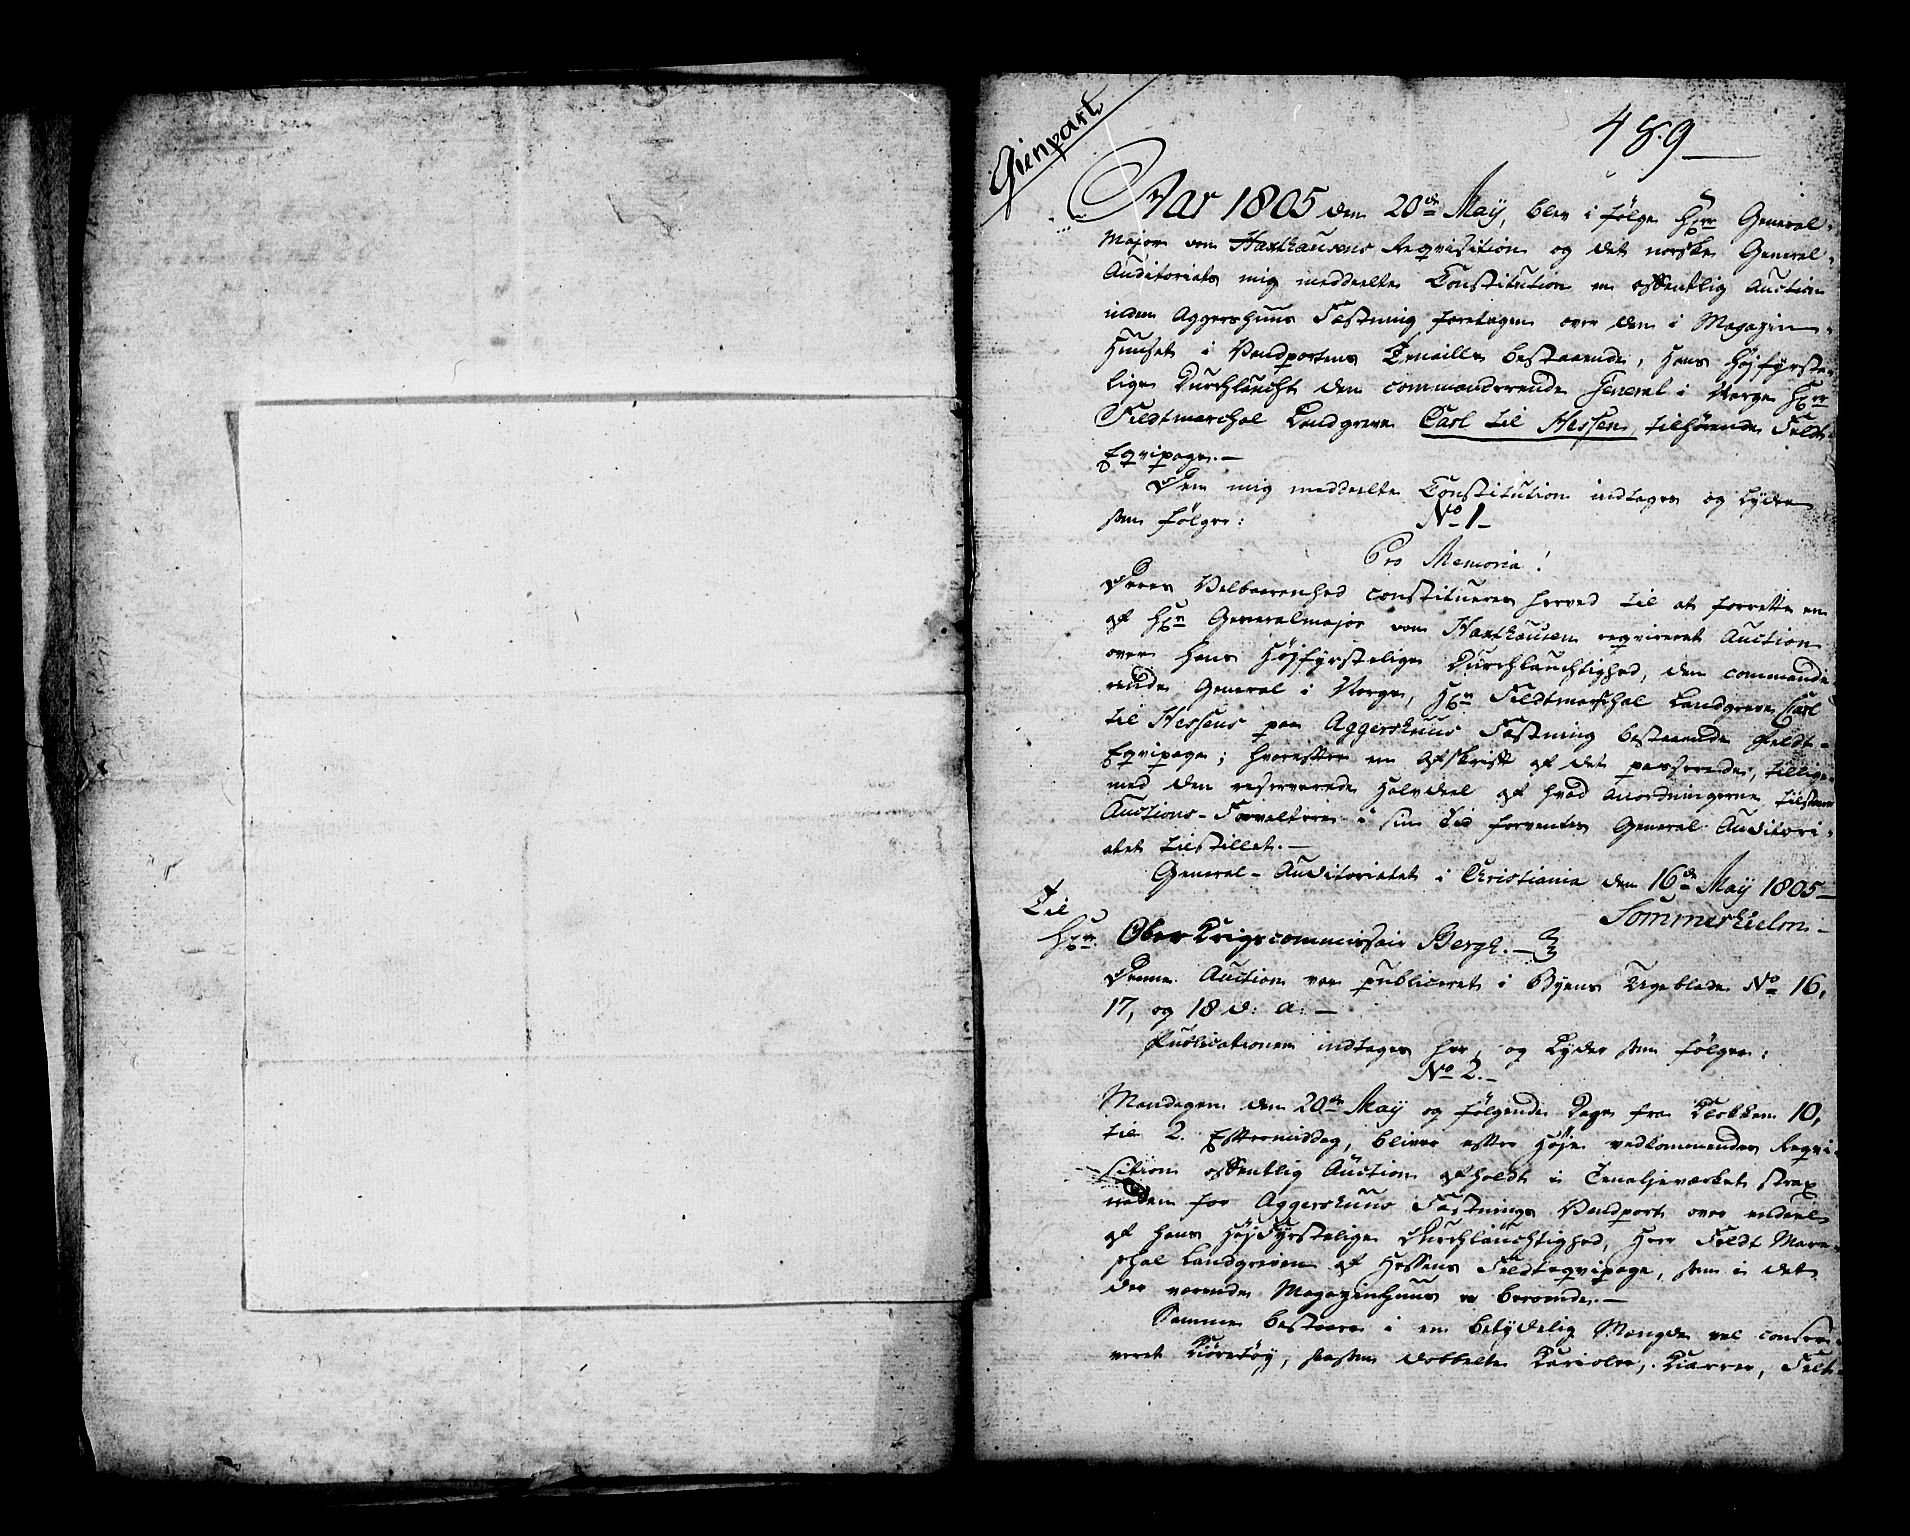 Gienpart
489
Aar 1805 den 20de May, blev i følge Hrr General-
Major von Haxthausens Reqvisition og det norske General-
Auditoriats mig meddeelte Constitution en offentlig Auction
inden Aggershuus Fæstning foretagen over den i Magazin-
Huuset i Vandportens Tenaille bestaaende, Hans Højfyrste-
lige Durchlaucht den commanderende General i Norge Hrr
Feldtmarschal Landgreve Carl til Hessen, tilhørende Feldt-
Eqvipage.-
Den mig meddeelte Constitution indtages og lyder
som følger:
No 1-
Pro Memoria!
Deres Velbaarenhed constitueres herved til at forrette en
af Hrr Generalmajor von Haxthausen reqvireret Auction
over Hans Højfyrstelige Durchlauchtighed, den commande-
rende General i Norge, Hrr Feldtmarschal Landgreve Carl
til Hessens paa Aggershuus Fæstning bestaaende Feldt-
Eqvipage; hvorefter en Afskrift af det passerende, tillige
med den reserverede Halvdeel af hvad Anordningerne tilstaaer
Auctions-Forvaltere i sin Tid forventes General Auditori-
atet tilstillet.-
General-Auditoriatet i Christiania den 16de May 1805-
Sommerhielm-
Til
Hrr Ober Krigscommissair Bergh.-
Denne Auction var publiceret i Byens Ugeblade No 16,
17, og 18 d: A:-
Publicationen indtages her, og lyder som følger:
No 2.-
Mandagen den 20de May og følgende Dage fra Klokken 10,
til 2 Eftermiddag, bliver efter Høje vedkommendes Reqvi-
sition offentlig Auction afholdt i Tenaljeværket strax
neden for Aggershuus Fæstnings Vandport over endeel
af Hans HøjFyrstelige Durchlauchtighed, Herr Feldt Mare-
schal Landgreven af Hessens Feldteqvipage, som i det
der værende Magazinhuus er beroende.-
Samme bestaaer i en betydelig Mængde vel conser-
veret Kiøretøy, saasom dobbelte Karioler, Karrer, Felt-